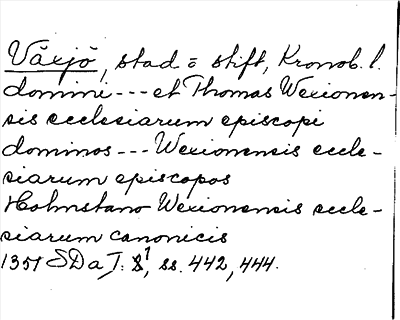 Växjö, stad o stift, Kronob. l.
domini --- et Thomas Wexionen-
sis ecclesiarum episcopi
dominos --- Wexionensis eccle-
siarum episcopos
Holmstano Wexionensis eccle-
siarum canonicis
1351 SDa I: 8¹, ss. 442, 444.